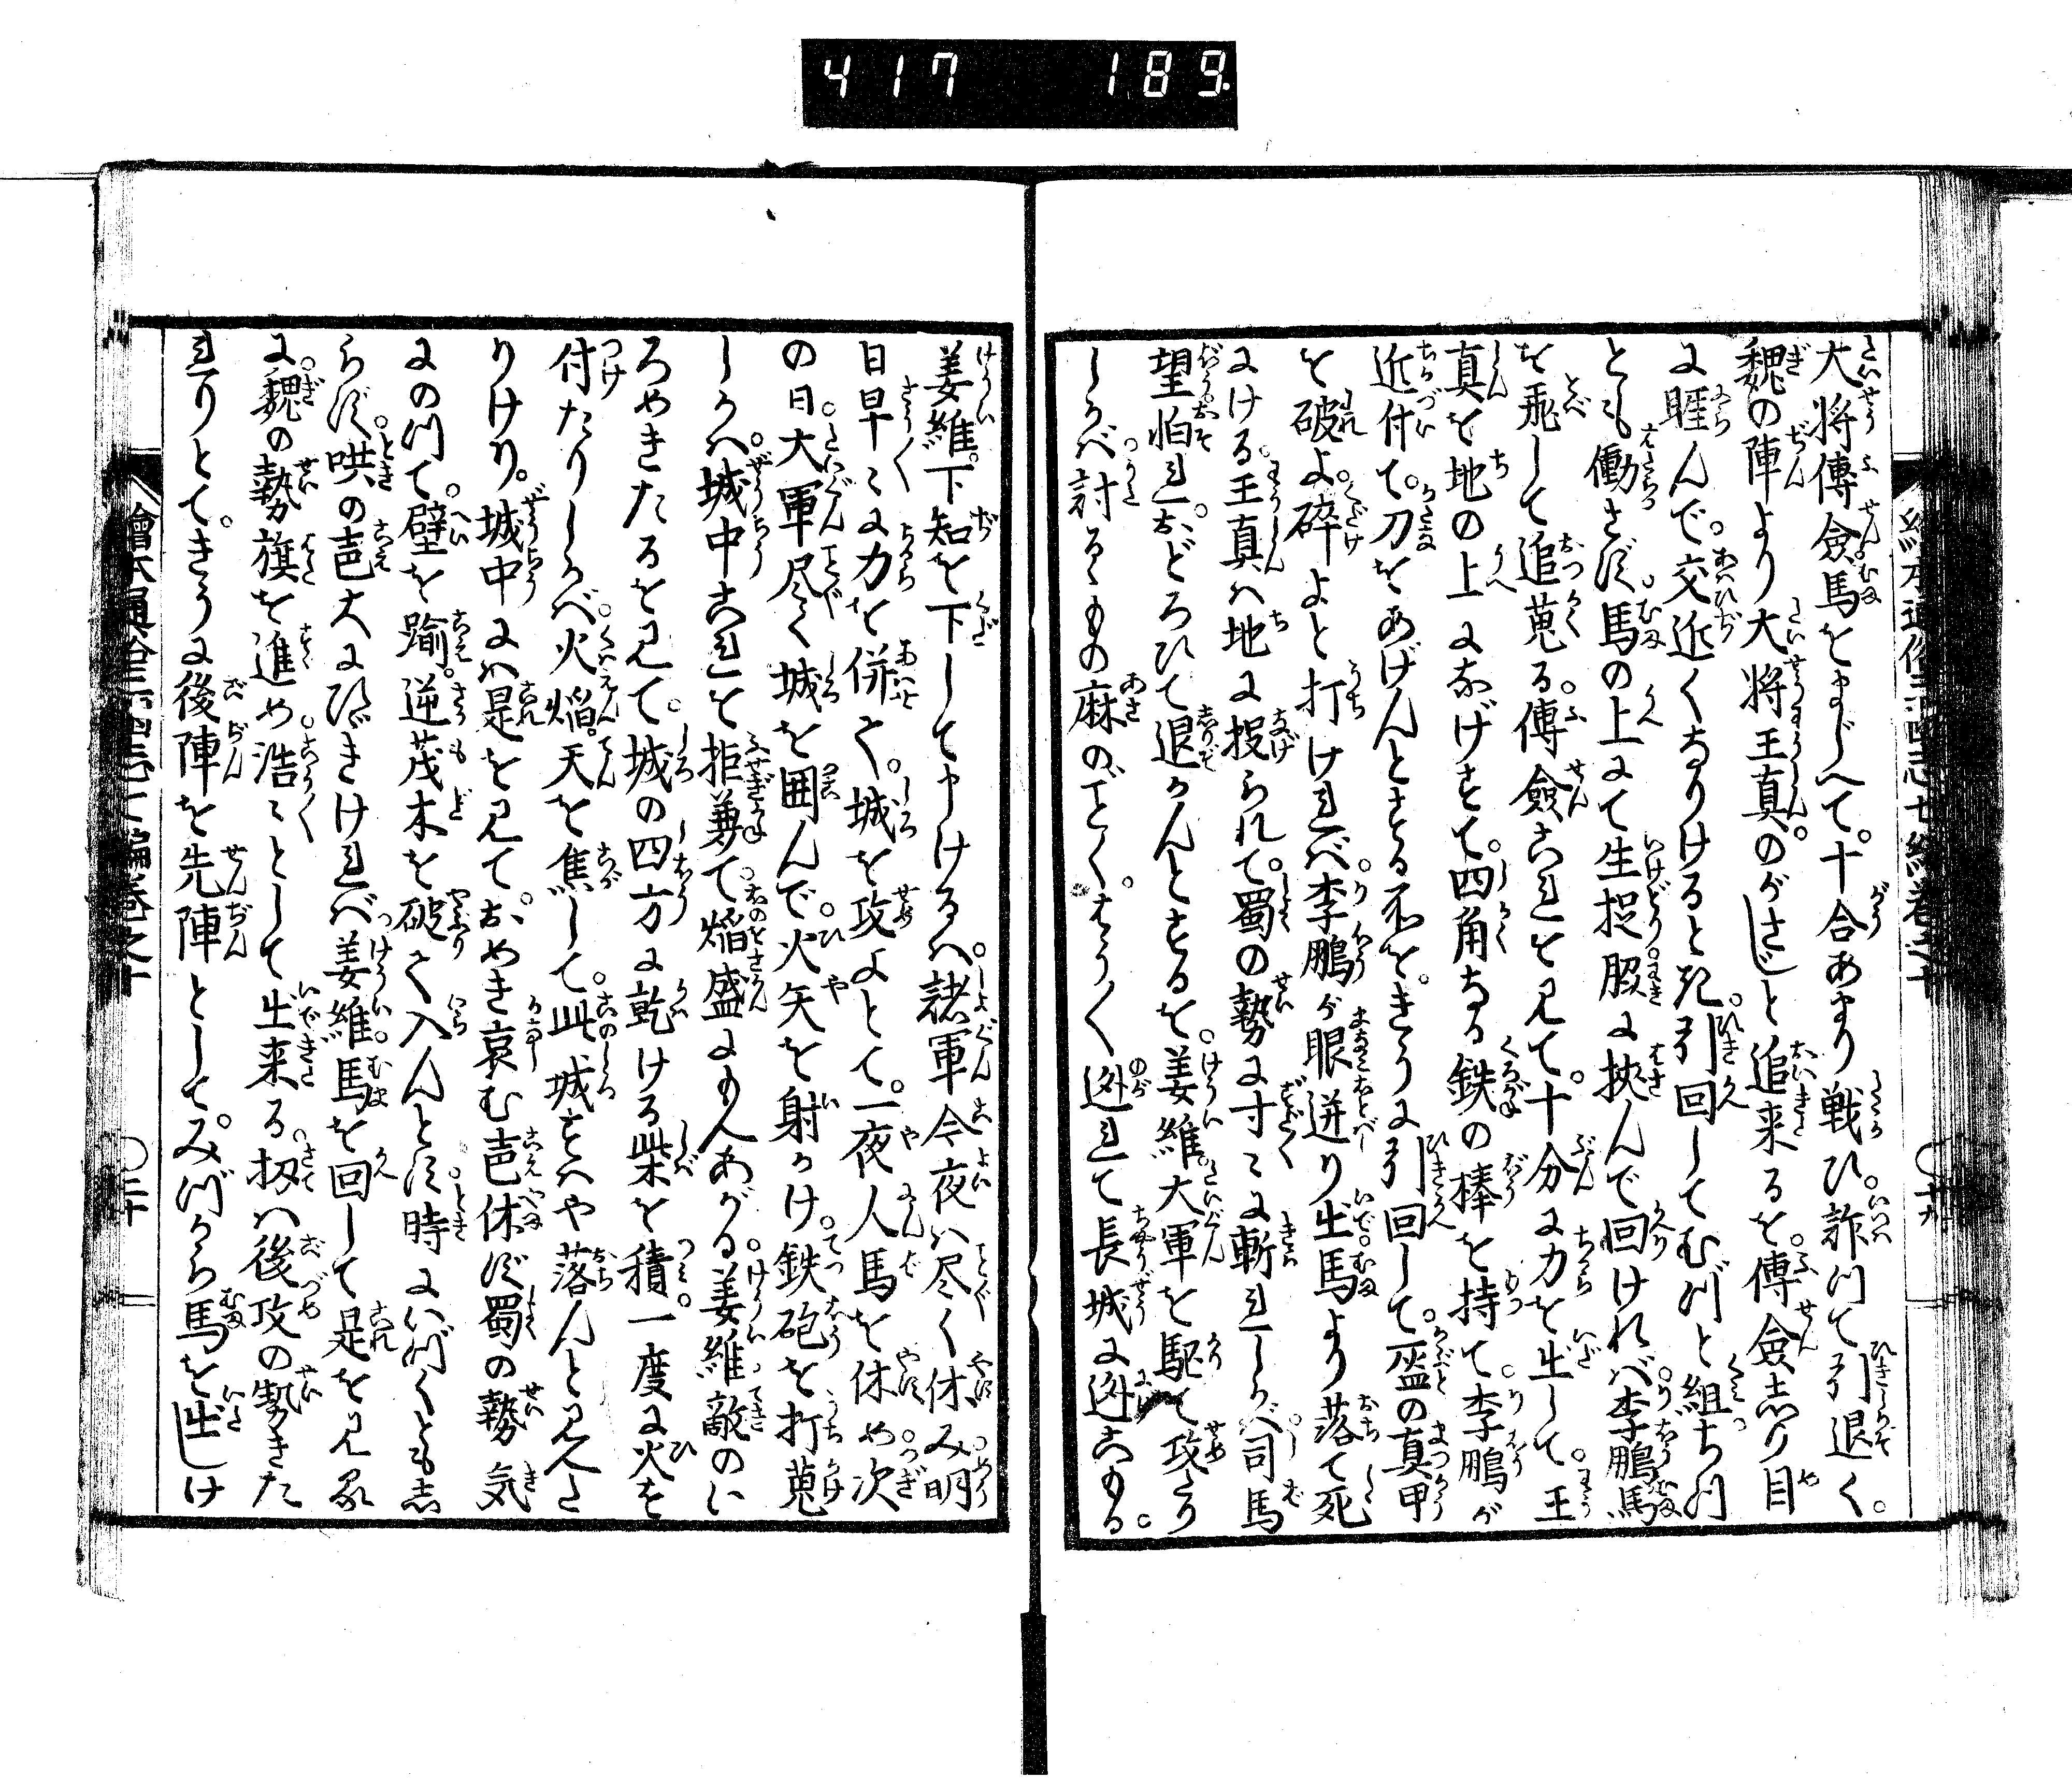 417 189
大将傅僉馬をまじへて。十合あまり戦ひ。詐川て引退く。
魏の陣より大将王真。のがさじと追来るを。傅僉志りめ
に睚んで。交近くなりけると死。引回してむづと組ち川
とも働さず。馬の上にて生捉。脇に挾んで回けれバ。李鵬馬
を飛して追蒐る。傅僉これを見て。十分に力を出して。王
真を地の上になげすて。四角なる鉄の棒を持て。李鵬が
近付て。刀をあげんとする所を。きうに引回して。盔の真甲
を破よ。砕よと打けれバ。李鵬が眼迸り出。馬より落て死
にける。王真ハ地に投られて。蜀の勢に寸々に斬れしかバ。司馬
望怕れ。おどろひて退かんとするを。姜維。大軍を駆て攻かゝり
しかバ。討るゝもの麻のごとく。はう〱迯れて長城に迯こもる。
姜維。下知を下して申けるハ。諸軍今夜ハ尽く休み。明
日早々に力を併せ。城を攻よとて。一夜人馬を休め。次
の日。大軍尽く城を囲んで。火矢を射かけ。鉄砲を打蒐
しかバ。城中これを拒兼て。焔盛にもへあがる。姜維。敵のい
ろめきたるを見て。城の四方に乾ける柴を積。一度に火を
付たりしかバ。火焔。天を焦して。此城すハや落んと見へた
りけり。城中にハ是を見て。おめき哀む声休ず。蜀の勢気
にの川て。壁を踰。逆茂木を破て入んとす。時にい川くとも志
らず。哄の声大にひゞきけれバ。姜維。馬を回して是を見る
に。魏の勢旗を進め。浩々として出来る。扨ハ後攻の勢きた
れりとて。きうに後陣を先陣として。みづから馬を出しけ